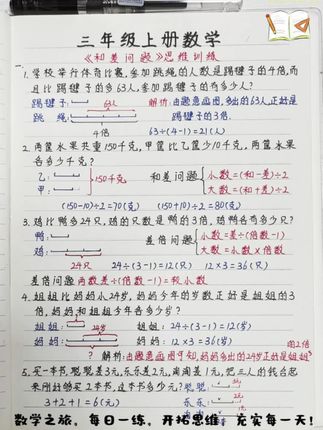 三年级上册数学
《和差问题》思维训练
1. 学校举行体育比赛,参加跳绳的人数是踢毽子的4倍,而
且比踢毽子的多63人,参加踢毽子的有多少人?
踢毽子: 63人 解析:由题意画图,多出的63人正好是
跳绳: 踢毽子的3倍。
4倍 63÷(4-1)=21(人)
2. 两筐水果共重150千克,甲筐比乙筐少10千克,两筐水果
各多少千克?
乙: 150千克 和差问题 小数=(和-差)÷2
甲: 大数=(和+差)÷2
(150-10)÷2=70(克) (150+10)÷2=80(克)
3. 鸡比鸭多24只,鸡的只数是鸭的3倍,鸡鸭各有多少只?
鸭: 差倍问题 小数=差÷(倍数-1)
鸡: 大数=小数×倍数
24只 24÷(3-1)=12(只) 12×3=36(只)
差倍问题 两数差÷(倍数-1)=较小数
4. 姐姐比妈妈小24岁,妈妈今年的岁数正好是姐姐的3
倍,妈妈和姐姐今年各多少岁?
姐姐: 24岁 姐姐:24÷(3-1)=12(岁)
妈妈: 妈妈:12×3=36(岁) 图2倍
? 解析:由题意画图可知,妈妈多出的24岁正好是姐姐
5. 买一本书,聪聪差3元,乐乐差2元,南南差1元,把三人的钱合起
来刚好够买2本书,这本书多少元? 聪聪: 3元
3+2+1=6(元) 乐乐: 2元
数学之旅,每日一练,开拓思维,充实每一天!